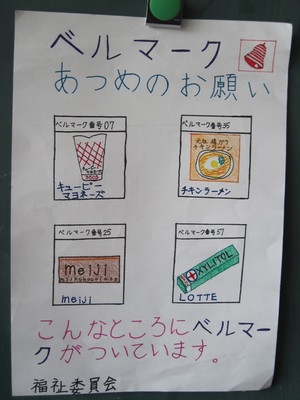 ベルマーク
あつめのお願い
ベルマーク番号07
キューピー
マヨネーズ
ベルマーク番号35
チキンラーメン
チキンラーメン
ベルマーク番号25
meiji
meiji
ベルマーク番号57
XYLITOL
LOTTE
こんなところにベルマー
クがついています。
福祉委員会